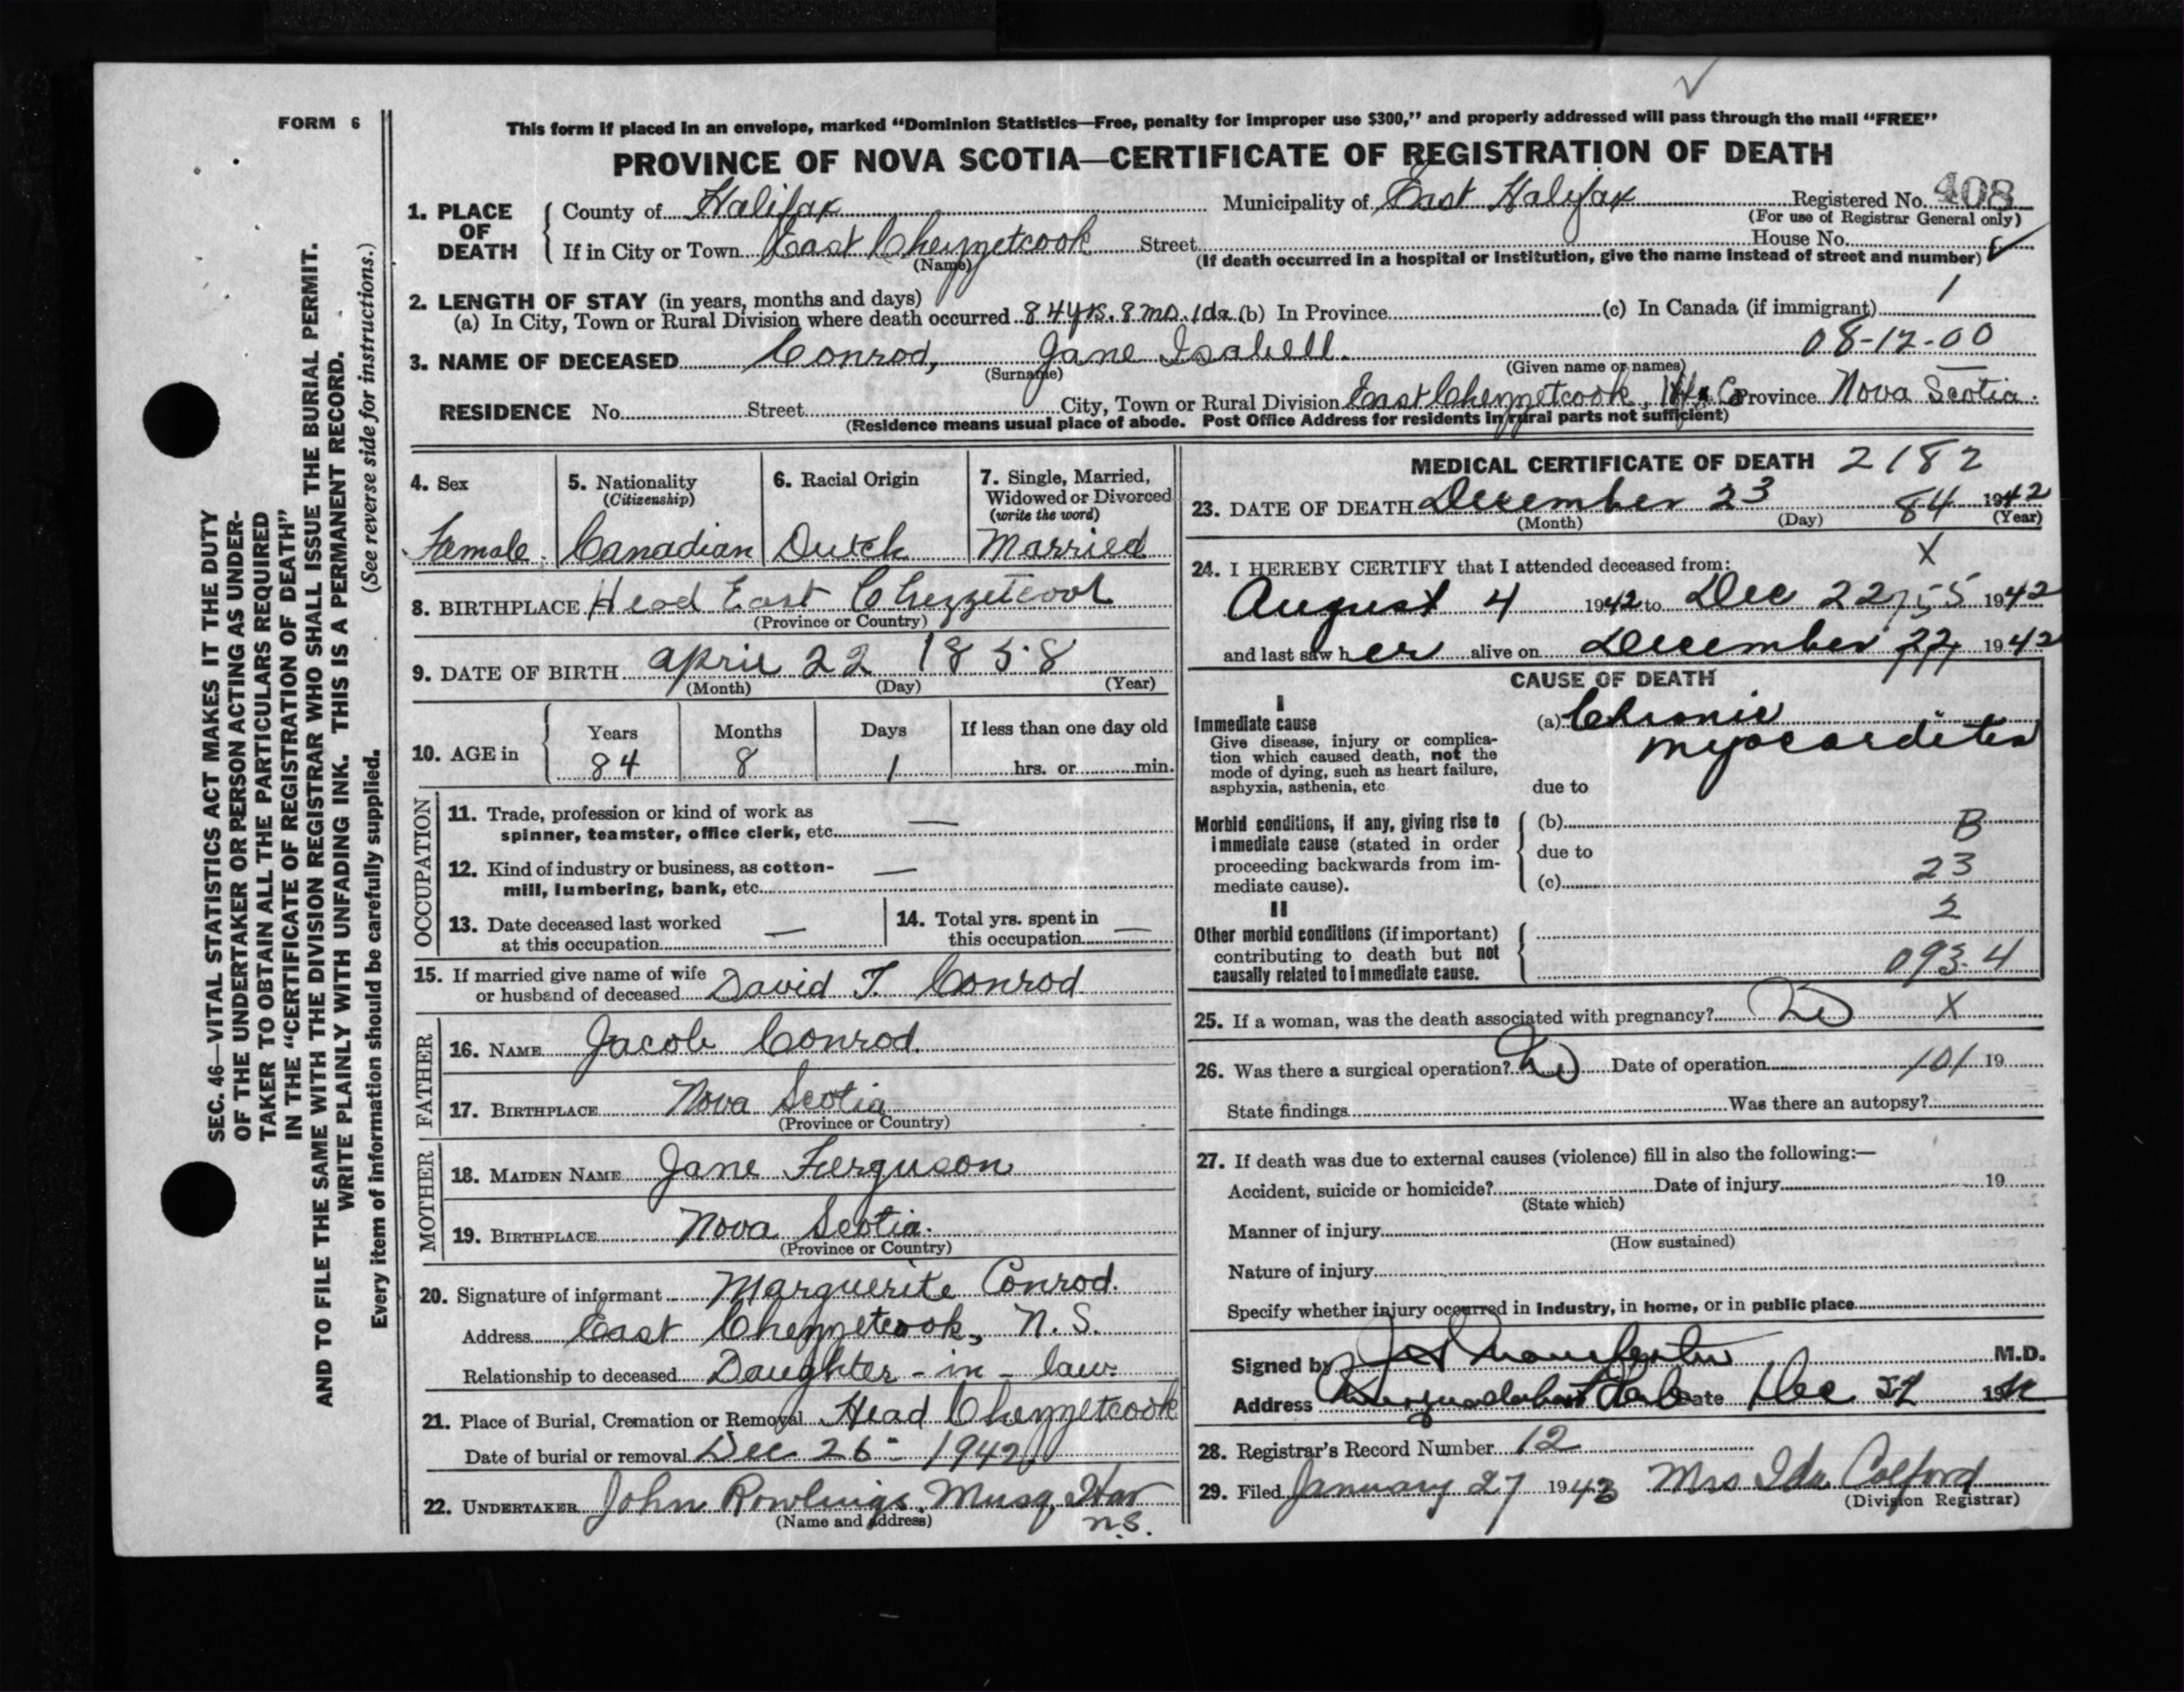 FORM 6
This form if placed in an envelope, marked “Dominion Statistics—Free, penalty for improper use $300,” and properly addressed will pass through the mail “FREE”
PROVINCE OF NOVA SCOTIA—CERTIFICATE OF REGISTRATION OF DEATH
SEC. 46—VITAL STATISTICS ACT MAKES IT THE DUTY
OF THE UNDERTAKER OR PERSON ACTING AS UNDER-
TAKER TO OBTAIN ALL THE PARTICULARS REQUIRED
IN THE “CERTIFICATE OF REGISTRATION OF DEATH”
AND TO FILE THE SAME WITH THE DIVISION REGISTRAR WHO SHALL ISSUE THE BURIAL PERMIT.
WRITE PLAINLY WITH UNFADING INK. THIS IS A PERMANENT RECORD.
Every item of information should be carefully supplied. (See reverse side for instructions.)
1. PLACE OF DEATH County of Halifax Municipality of East Halifax Registered No. 408
(For use of Registrar General only)
If in City or Town East Chezzetcook Street House No.
(Name) (If death occurred in a hospital or institution, give the name instead of street and number)
2. LENGTH OF STAY (in years, months and days)
(a) In City, Town or Rural Division where death occurred 84 yrs. 8 mo. 1 da (b) In Province (c) In Canada (if immigrant) 1
3. NAME OF DECEASED Conrod, Jane Isabell. 08-12-00
(Surname) (Given name or names)
RESIDENCE No. Street City, Town or Rural Division East Chezzetcook, Hfx Co Province Nova Scotia.
(Residence means usual place of abode. Post Office Address for residents in rural parts not sufficient)
4. Sex 5. Nationality (Citizenship) 6. Racial Origin 7. Single, Married, Widowed or Divorced (write the word)
Female. Canadian Dutch Married
8. BIRTHPLACE Head East Chezzetcook
(Province or Country)
9. DATE OF BIRTH April 22 1858
(Month) (Day) (Year)
10. AGE in Years Months Days If less than one day old
84 8 1 hrs. or min.
OCCUPATION
11. Trade, profession or kind of work as
spinner, teamster, office clerk, etc. —
12. Kind of industry or business, as cotton-
mill, lumbering, bank, etc. —
13. Date deceased last worked
at this occupation —
14. Total yrs. spent in
this occupation —
15. If married give name of wife
or husband of deceased David T. Conrod
FATHER
16. NAME Jacob Conrod.
17. BIRTHPLACE Nova Scotia
(Province or Country)
MOTHER
18. MAIDEN NAME Jane Ferguson
19. BIRTHPLACE Nova Scotia.
(Province or Country)
20. Signature of informant Marguerite Conrod.
Address East Chezzetcook, N.S.
Relationship to deceased Daughter-in-law.
21. Place of Burial, Cremation or Removal Head Chezzetcook
Date of burial or removal Dec 26 - 1942
22. UNDERTAKER John Rowlings, Musq. Har
(Name and address) N.S.
MEDICAL CERTIFICATE OF DEATH 2182
23. DATE OF DEATH December 23 84 1942
(Month) (Day) (Year)
X
24. I HEREBY CERTIFY that I attended deceased from:
August 4 1942 to Dec 22 1942
and last saw her alive on December 22 1942
CAUSE OF DEATH
I
Immediate cause
Give disease, injury or complica-
tion which caused death, not the
mode of dying, such as heart failure,
asphyxia, asthenia, etc
(a) Chronic
myocarditis
due to
Morbid conditions, if any, giving rise to
immediate cause (stated in order
proceeding backwards from im-
mediate cause).
(b) B
due to
(c) 23
II 2
Other morbid conditions (if important)
contributing to death but not
causally related to immediate cause.
093.4
25. If a woman, was the death associated with pregnancy? No X
26. Was there a surgical operation? No Date of operation 101 19
State findings Was there an autopsy?
27. If death was due to external causes (violence) fill in also the following:—
Accident, suicide or homicide? Date of injury 19
(State which)
Manner of injury
(How sustained)
Nature of injury
Specify whether injury occurred in industry, in home, or in public place
Signed by M.D.
Address Date Dec
28. Registrar's Record Number 12
29. Filed January 27 1943 Mrs Ida Colford
(Division Registrar)